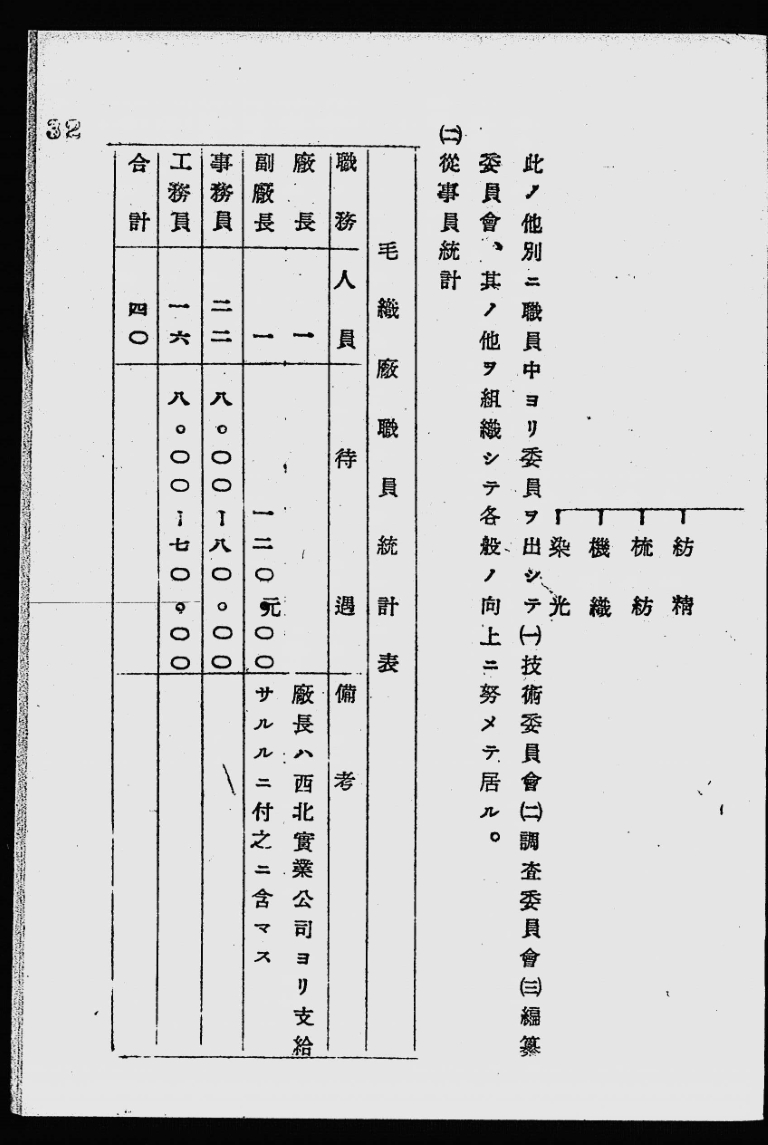 紡精
梳紡
機織
染光
此ノ他別ニ職員中ヨリ委員ヲ出シテ㈠技術委員會㈡調査委員會㈢編纂
委員會、其ノ他ヲ組織シテ各般ノ向上ニ努メテ居ル。
㈡從事員統計
毛織廠職員統計表
職務 人員 待遇 備考
廠長 一 廠長ハ西北實業公司ヨリ支給
副廠長 一 一二〇元。〇〇 サルルニ付之ニ含マス
事務員 二二 八。〇〇ー八〇。〇〇
工務員 一六 八。〇〇ー七〇。〇〇
合計 四〇
32